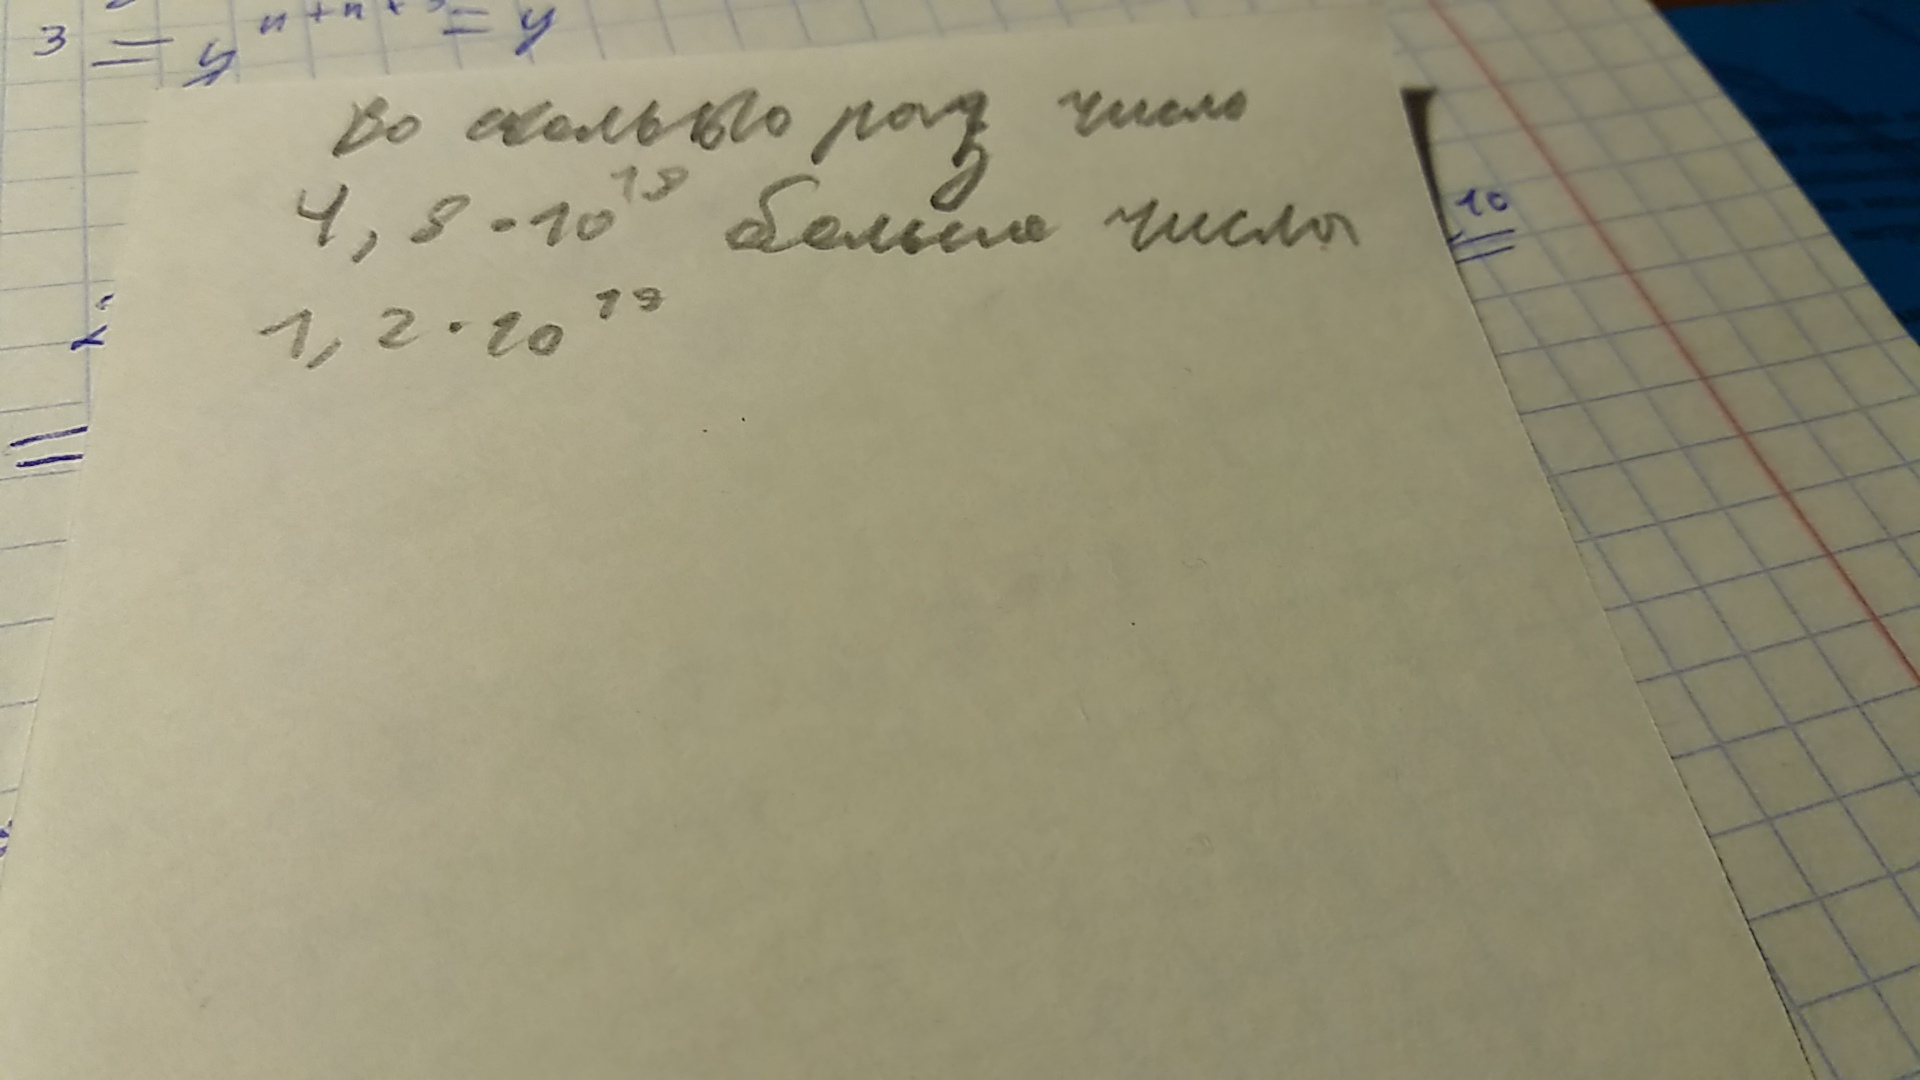 3 = y^n+n+3 = y
Во сколько раз число
4,8·10^18 больше числа
10
1,2·10^17